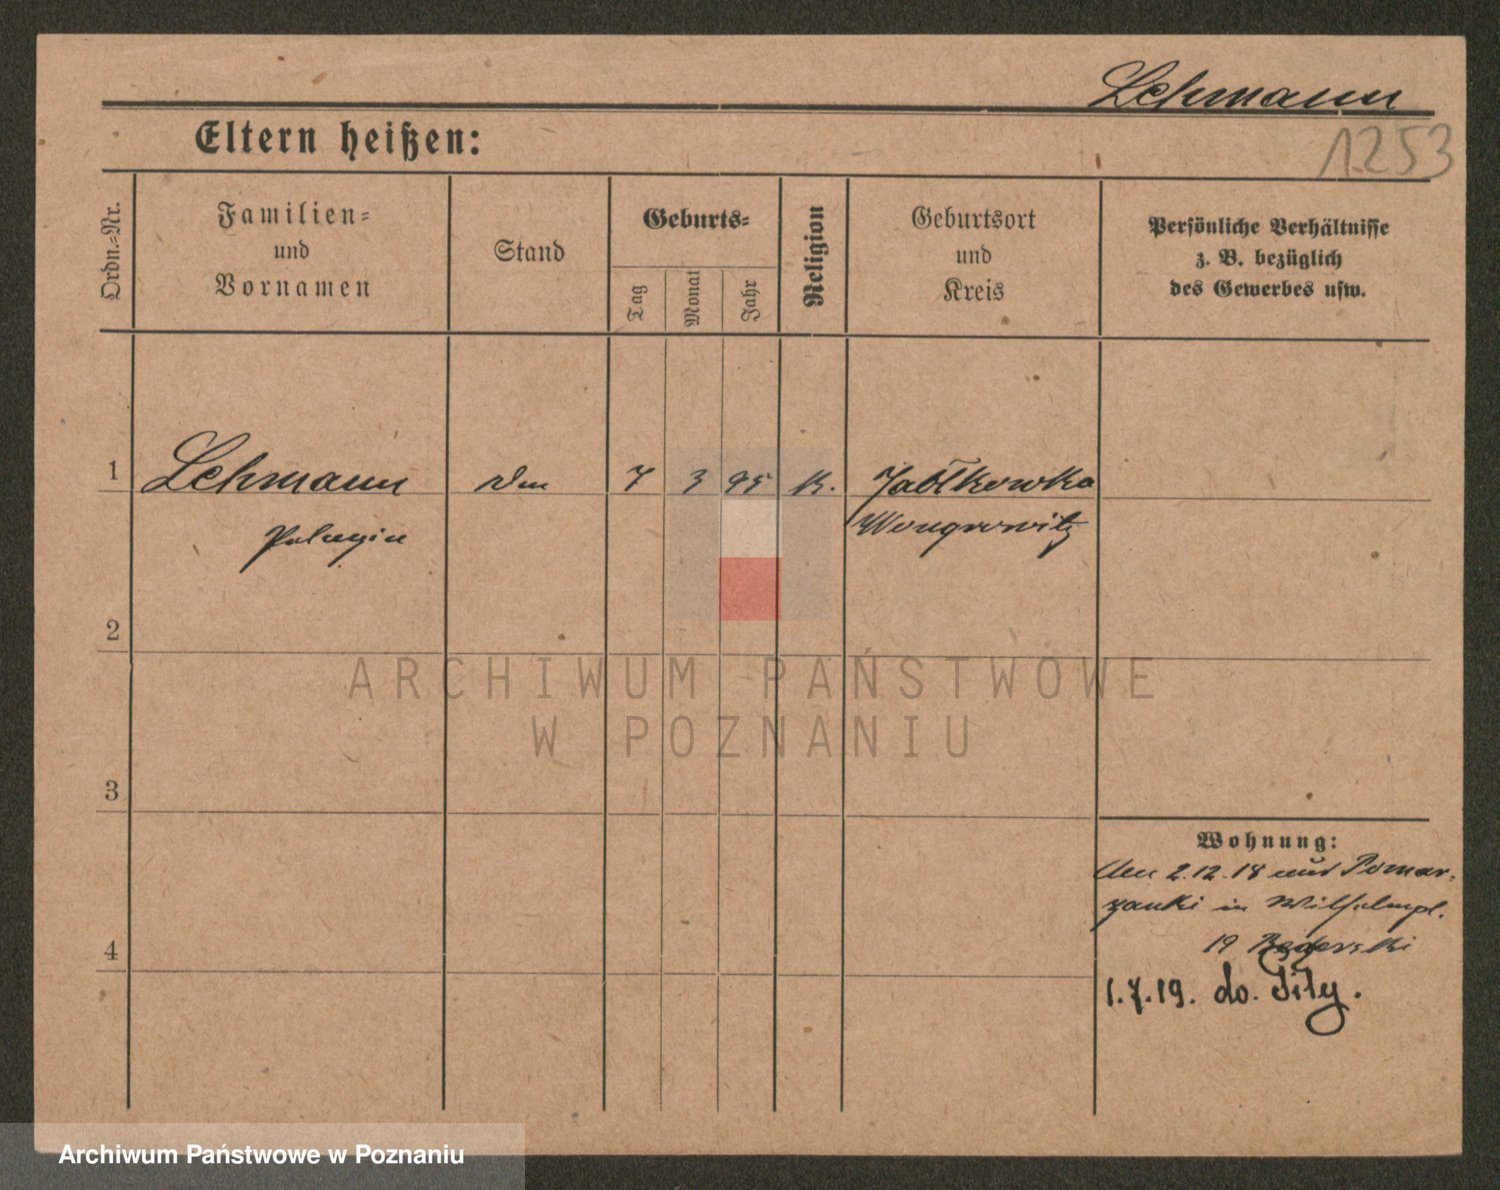 Lehmann
1253
Eltern heißen:
Ordn.=Nr.
Familien=
und
Vornamen
Stand
Geburts=
Tag
Monat
Jahr
Religion
Geburtsort
und
Kreis
Persönliche Verhältnisse
z. B. bezüglich
des Gewerbes usw.
1 Lehmann 7 3 95 K. Jabłkowko
Pelagia Wongrowitz
2
ARCHIWUM PAŃSTWOWE
W POZNANIU
3
Wohnung:
2.12.18 aus Pomar-
zanki in Wilhelmpl.
4
19
1.7.19. do. Piły.
Archiwum Państwowe w Poznaniu